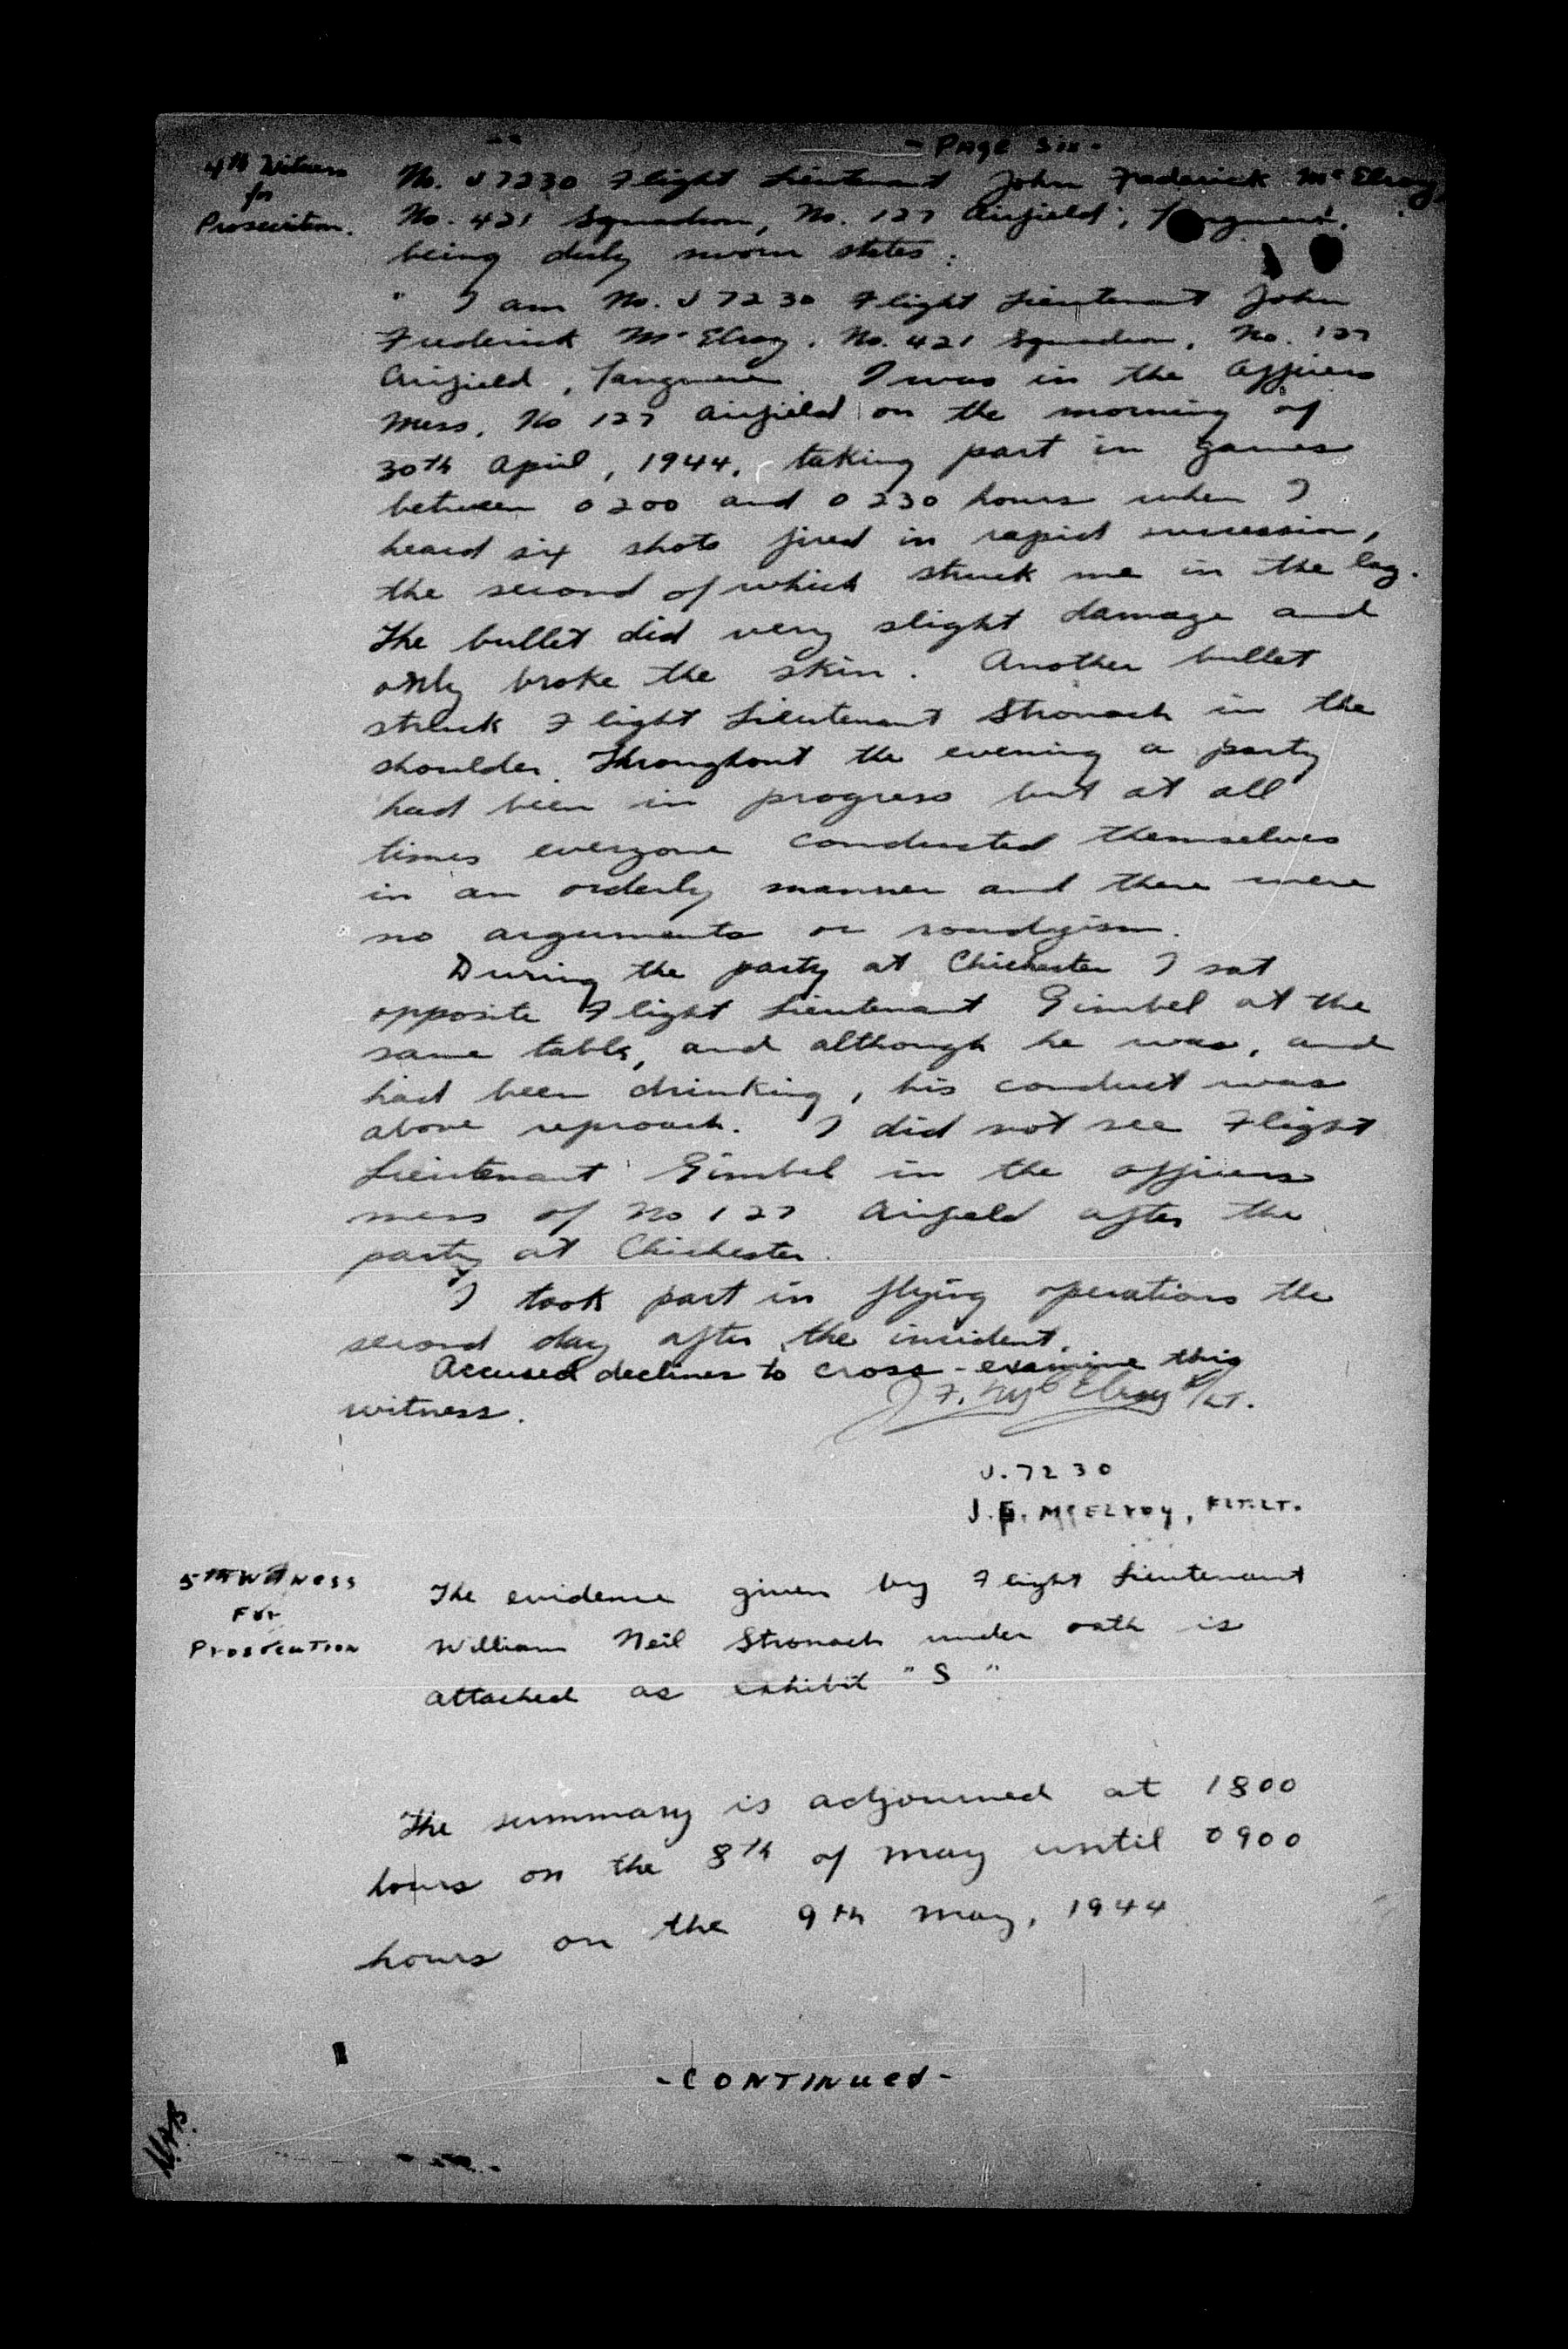 - Page Six -
4th Witness
for
Prosecution.
No. J7230 Flight Lieutenant John Frederick McElroy,
No. 421 Squadron, No. 127 Airfield,
being duly sworn states:
" I am No. J7230 Flight Lieutenant John
Frederick McElroy, No. 421 Squadron, No. 127
Airfield, Tangmere. I was in the Officers
Mess, No 127 Airfield on the morning of
30th April, 1944, taking part in games
between 0200 and 0230 hours when I
heard six shots fired in rapid succession,
the second of which struck me in the leg.
The bullet did very slight damage and
only broke the skin. Another bullet
struck Flight Lieutenant Stronach in the
shoulder. Throughout the evening a party
had been in progress but at all
times everyone conducted themselves
in an orderly manner and there were
no arguments or rowdyism.
During the party at Chichester I sat
opposite Flight Lieutenant Gimbel at the
same table, and although he was, and
had been drinking, his conduct was
above reproach. I did not see Flight
Lieutenant Gimbel in the officers
mess of No 127 Airfield after the
party at Chichester.
I took part in flying operations the
second day after the incident.
Accused declines to cross-examine this
witness.
J F. McElroy F/LT.
J.7230
J.F. McELroy, FLT.LT.
5TH WITNess
For
ProsecuTion
The evidence given by Flight Lieutenant
William Neil Stronach under oath is
attached as exhibit "S"
The summary is adjourned at 1800
hours on the 8th of May until 0900
hours on the 9th May, 1944
- CONTINued -